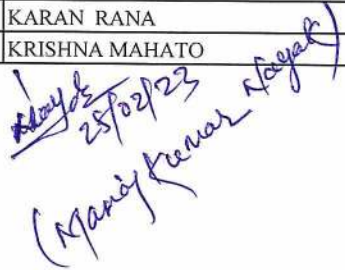 KARAN RANA
KRISHNA MAHATO
25/02/23
(Manoj Kumar Nayak)